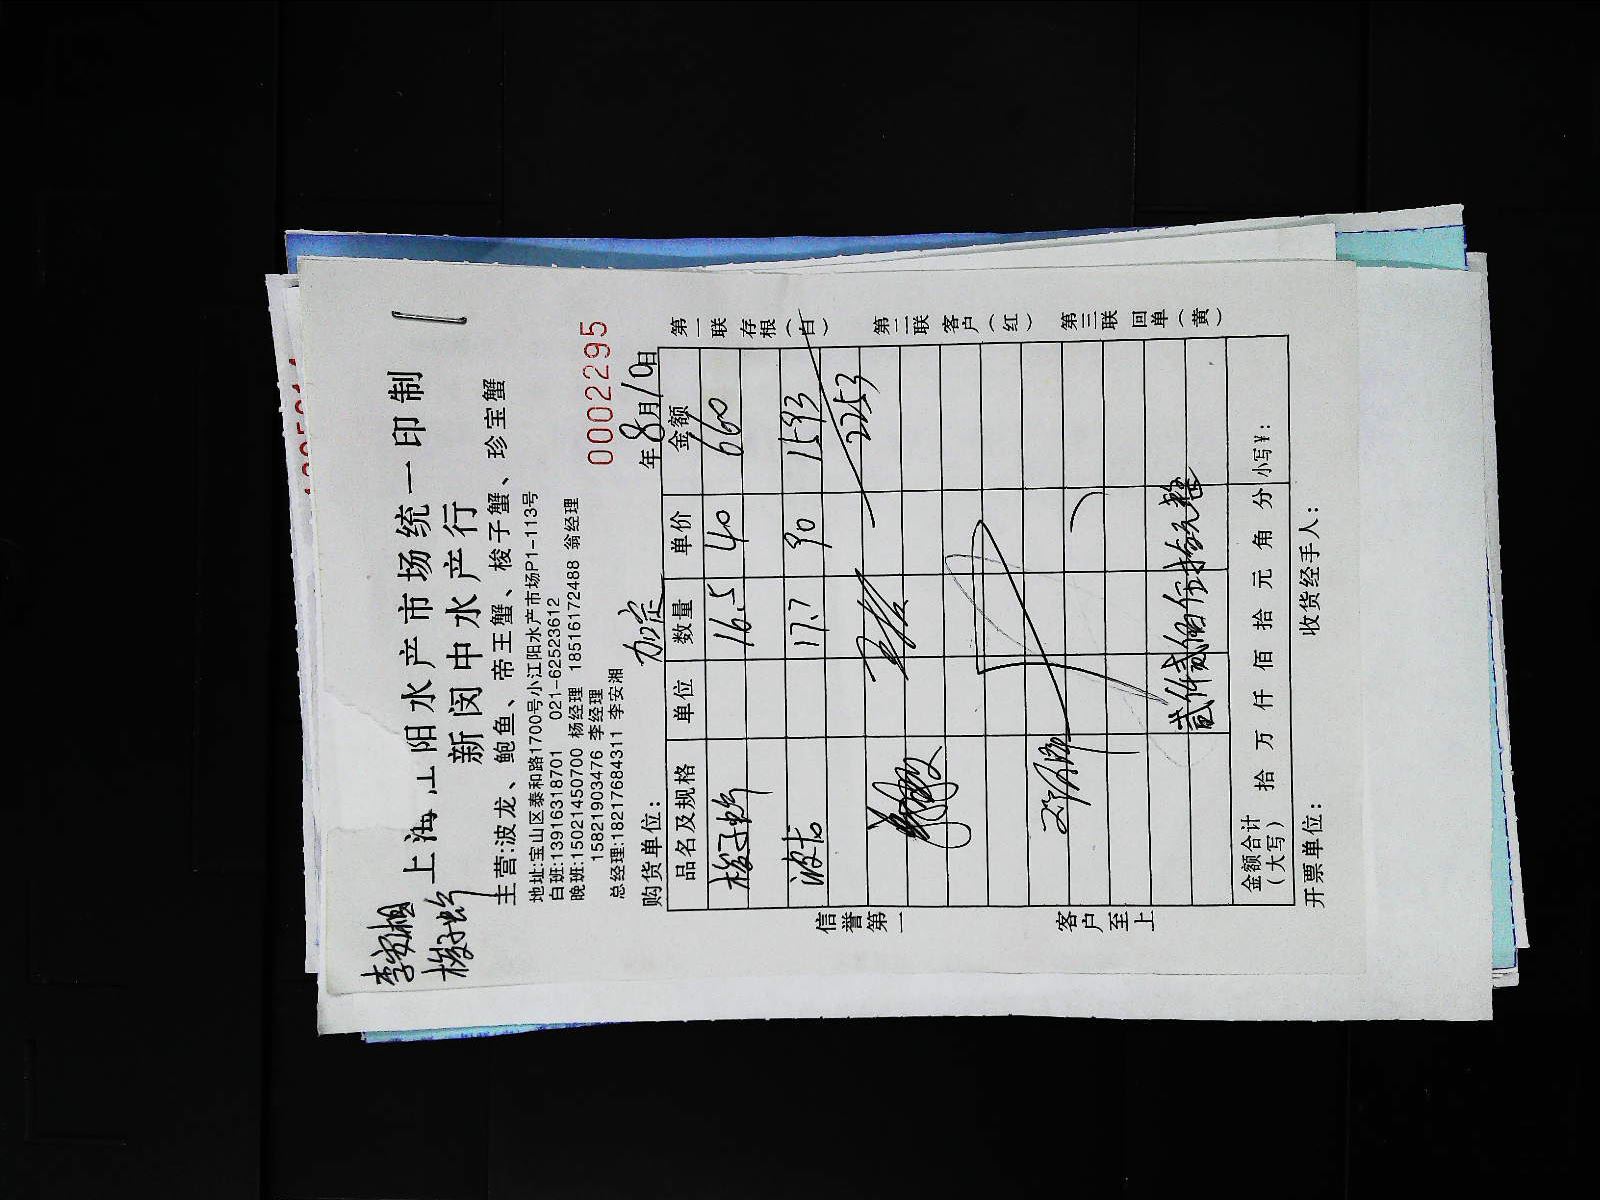 李安湘
梭子蟹
上海江阳水产市场统一印制
新闵中水产行
主营:波龙、鲍鱼、帝王蟹、梭子蟹、珍宝蟹
地址:宝山区泰和路1700号小江阳水产市场P1-113号
白班:13916318701 021-62523612
晚班:15021450700 杨经理 18516172488 翁经理
15821903476 李经理
总经理:18217684311 李安湘
0002295
购货单位: 加定 年8月10日
品名及规格 单位 数量 单价 金额
梭子蟹 16.5 40 660
波龙 17.7 90 1593
2253
贰仟贰佰伍拾元整
金额合计
(大写) 拾 万 仟 佰 拾 元 角 分 小写¥:
开票单位: 收货经手人:
信誉第一 客户至上
第一联存根(白) 第二联客户(红) 第三联回单(黄)